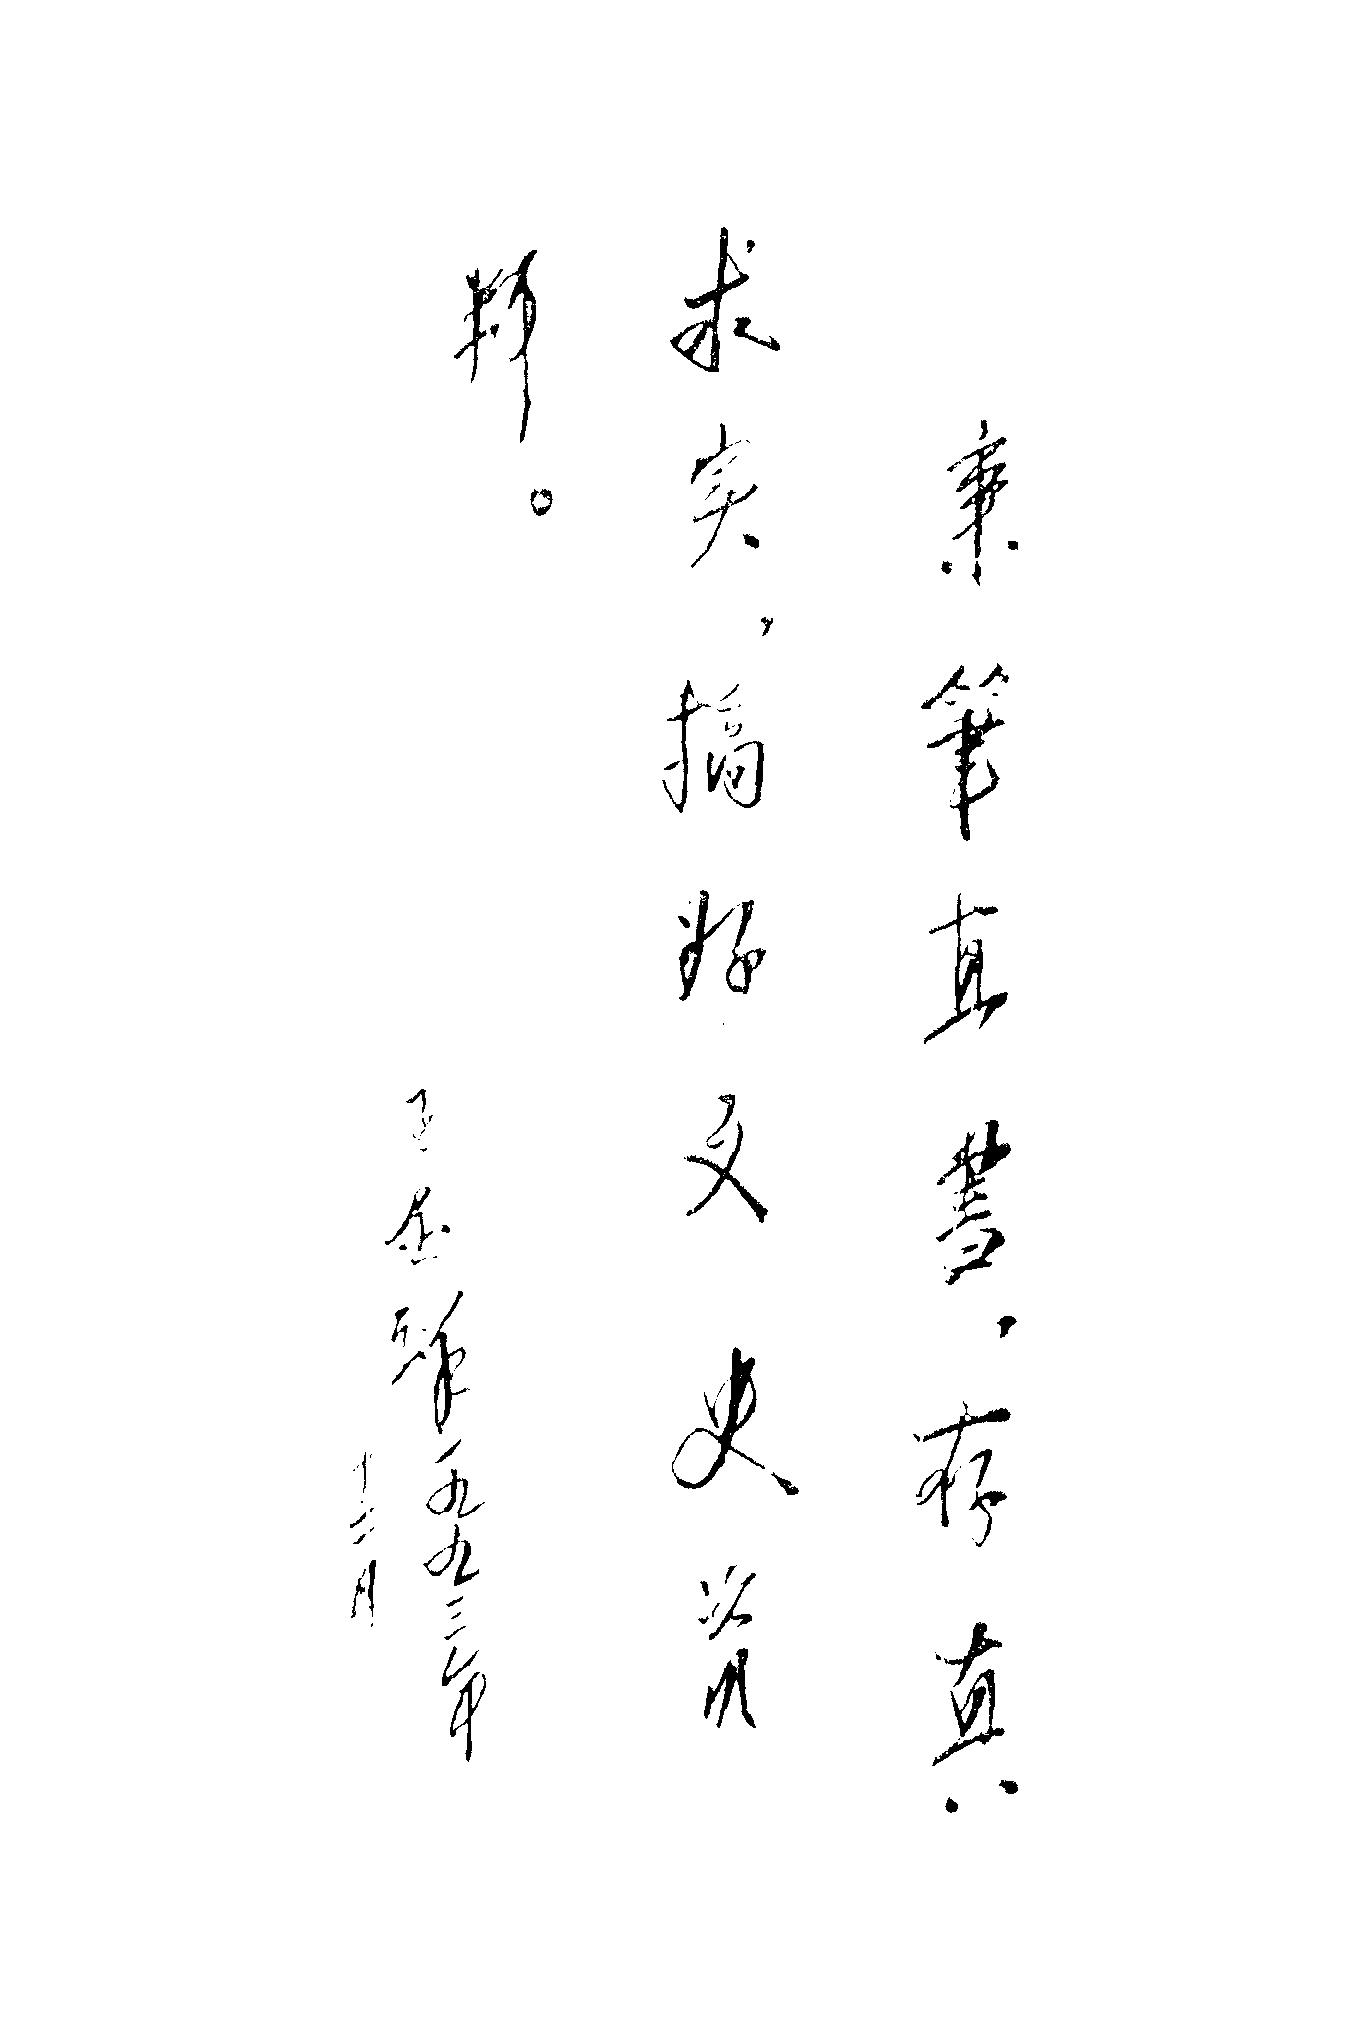 秉筆直書，存真
求实，搞好文史资
料。
王金璋一九九三年
十二月